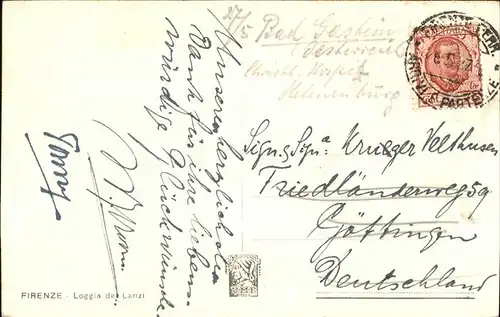 27/5 Bad Gastein
Oesterreich
Christl. Hospiz
Helenenburg
Unseren herzlichsten
Dank für ihre liebens-
würdige Glückwünsche.
Sign. e Sign.ª Krueger Velthusen
Friedländerweg 59
Göttingen
Deutschland
FIRENZE - Loggia dei Lanzi